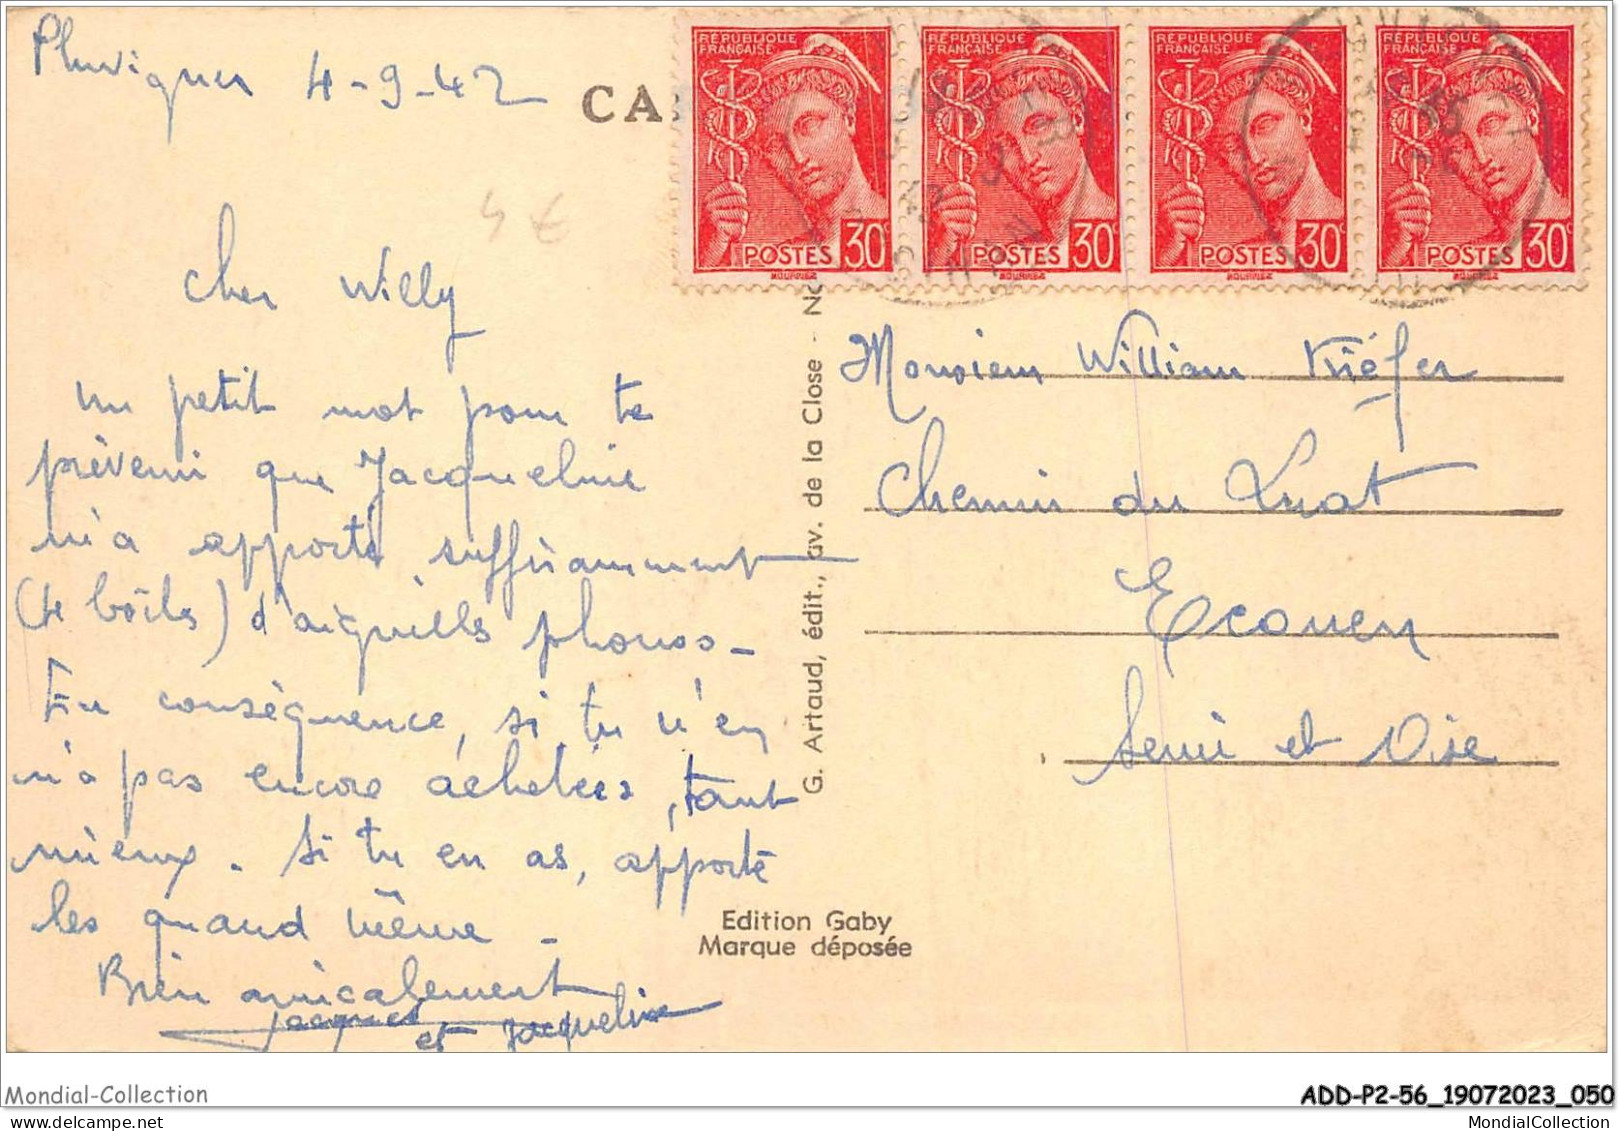 Pluvigner 4-9-42
CA
4 €
RÉPUBLIQUE FRANÇAISE POSTES 30c
RÉPUBLIQUE FRANÇAISE POSTES 30c
RÉPUBLIQUE FRANÇAISE POSTES 30c
RÉPUBLIQUE FRANÇAISE POSTES 30c
Cher Willy
Un petit mot pour te
prévenir que Jacqueline
m'a apporté suffisamment
(te boîtes) d'aiguilles phonos -
En conséquence, si tu n'en
n'a pas encore achetées, tant
mieux. Si tu en as, apporte
les quand même -
Bien amicalement
Jacques
et Jacqueline
G. Artaud, édit., av. de la Close - No
Monsieur William Kiéfer
Chemin du Luat
Ecouen
Seine et Oise
Edition Gaby
Marque déposée
Mondial-Collection
ADD-P2-56_19072023_050
MondialCollection